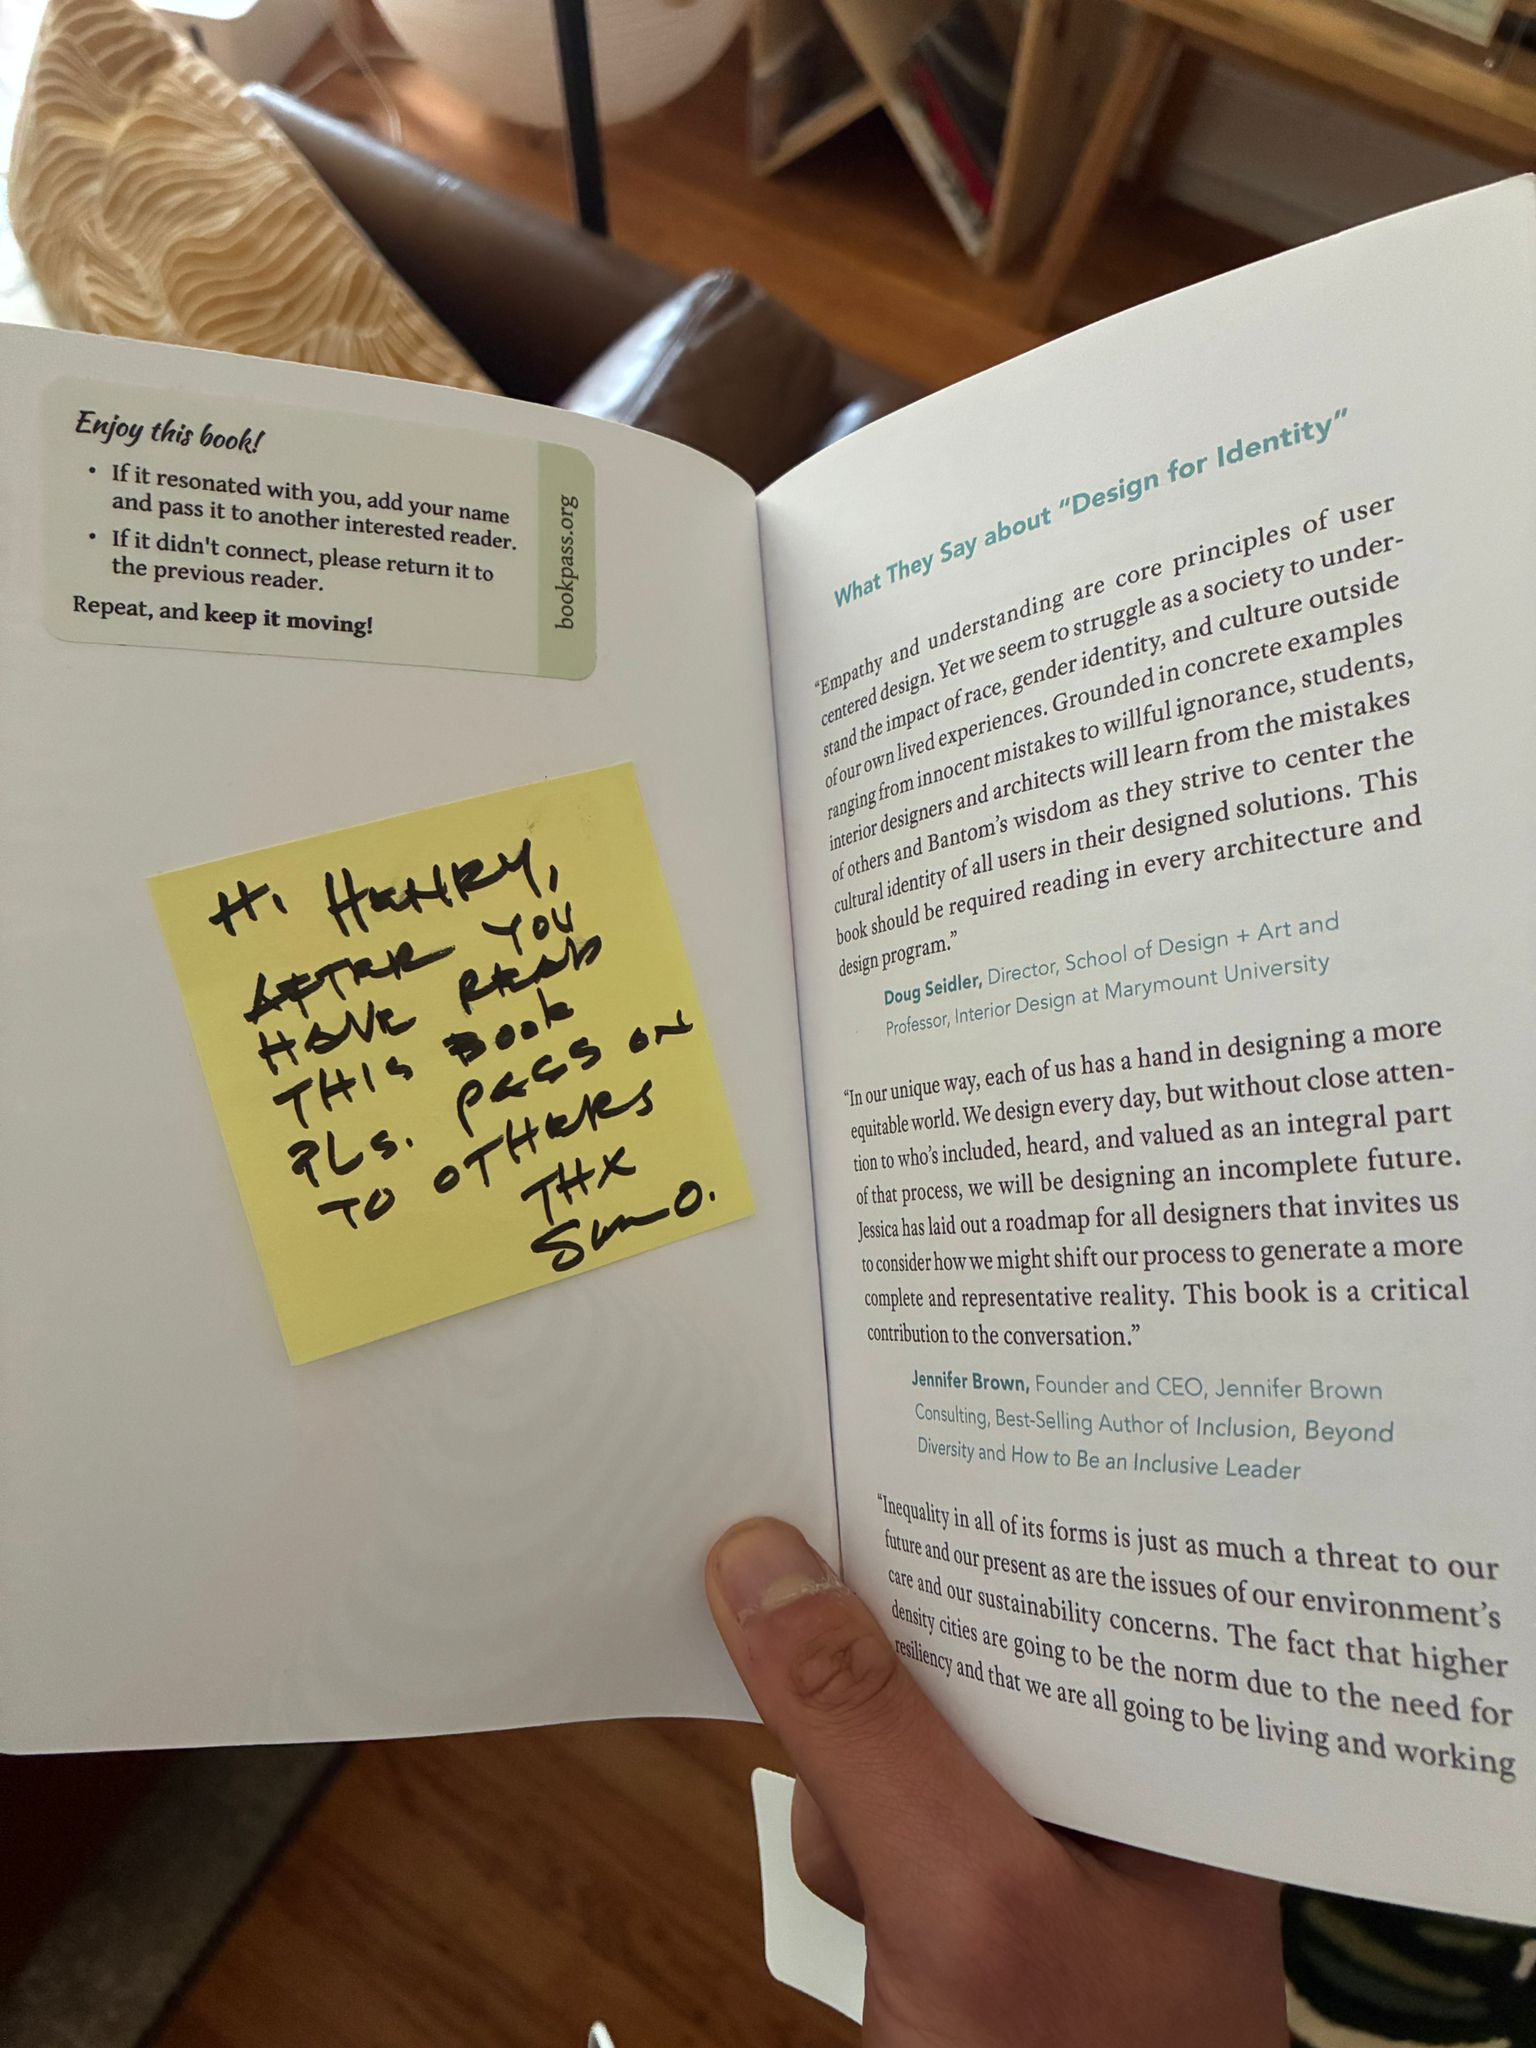 Enjoy this book!
• If it resonated with you, add your name
and pass it to another interested reader.
• If it didn't connect, please return it to
the previous reader.
Repeat, and keep it moving!
bookpass.org
HI HENRY,
AFTER YOU
HAVE READ
THIS BOOK
PLS. PASS ON
TO OTHERS
THX
What They Say about “Design for Identity”
“Empathy and understanding are core principles of user
centered design. Yet we seem to struggle as a society to under-
stand the impact of race, gender identity, and culture outside
of our own lived experiences. Grounded in concrete examples
ranging from innocent mistakes to willful ignorance, students,
interior designers and architects will learn from the mistakes
of others and Bantom’s wisdom as they strive to center the
cultural identity of all users in their designed solutions. This
book should be required reading in every architecture and
design program.”
Doug Seidler, Director, School of Design + Art and
Professor, Interior Design at Marymount University
“In our unique way, each of us has a hand in designing a more
equitable world. We design every day, but without close atten-
tion to who’s included, heard, and valued as an integral part
of that process, we will be designing an incomplete future.
Jessica has laid out a roadmap for all designers that invites us
to consider how we might shift our process to generate a more
complete and representative reality. This book is a critical
contribution to the conversation.”
Jennifer Brown, Founder and CEO, Jennifer Brown
Consulting, Best-Selling Author of Inclusion, Beyond
Diversity and How to Be an Inclusive Leader
“Inequality in all of its forms is just as much a threat to our
future and our present as are the issues of our environment’s
care and our sustainability concerns. The fact that higher
density cities are going to be the norm due to the need for
resiliency and that we are all going to be living and working